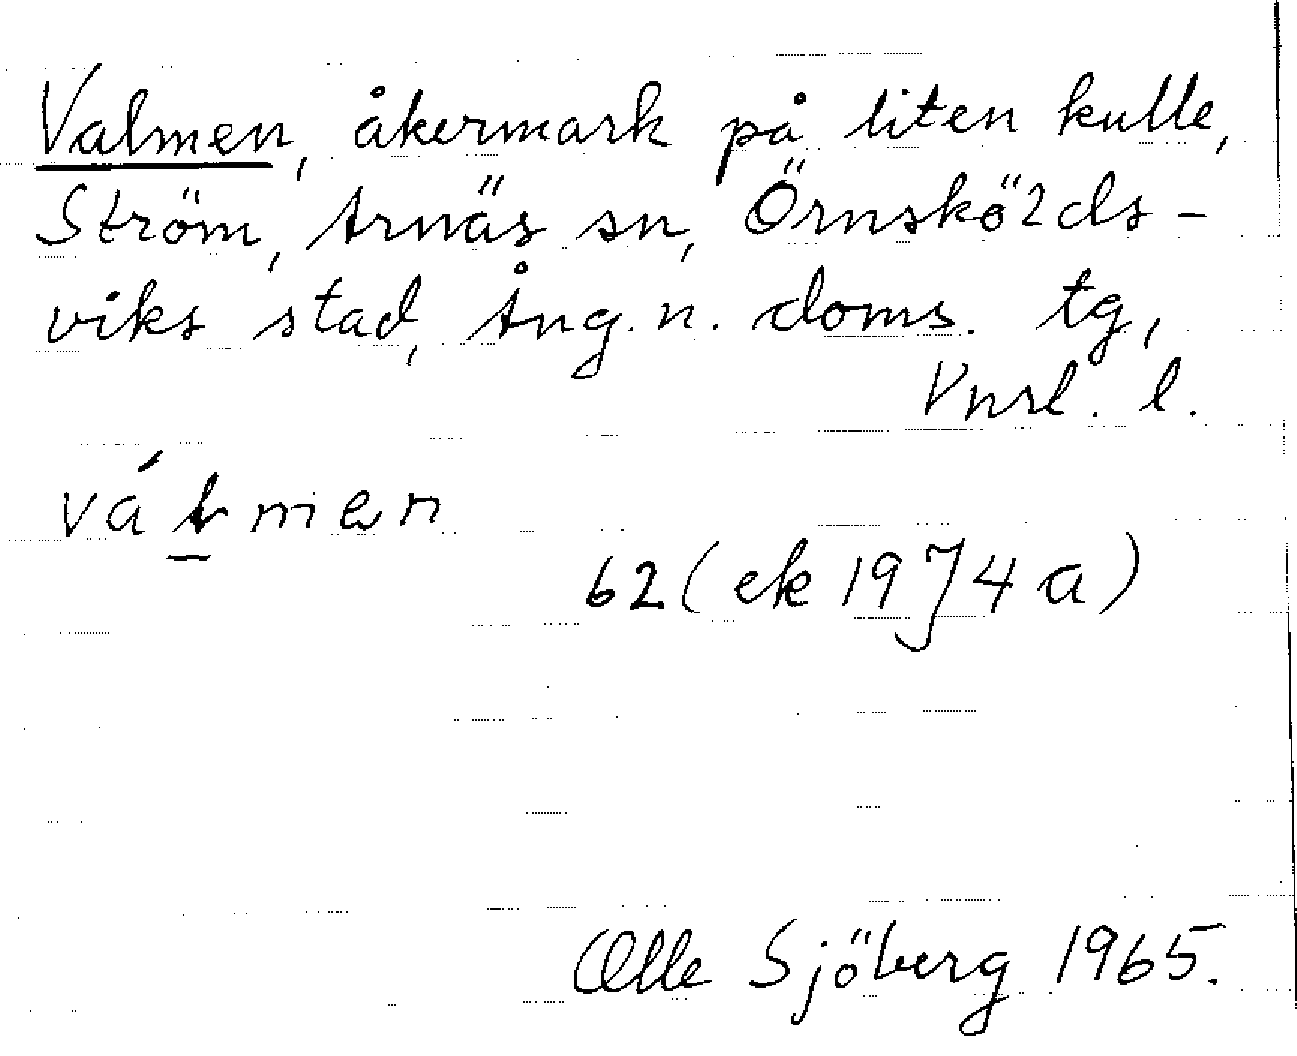 Valmen, åkermark på liten kulle,
Ström, Arnäs sn, Örnskölds-
viks stad, Ång. n. doms. tg,
Vnrl. l.
62 (ek 1974 a)
Olle Sjöberg 1965.